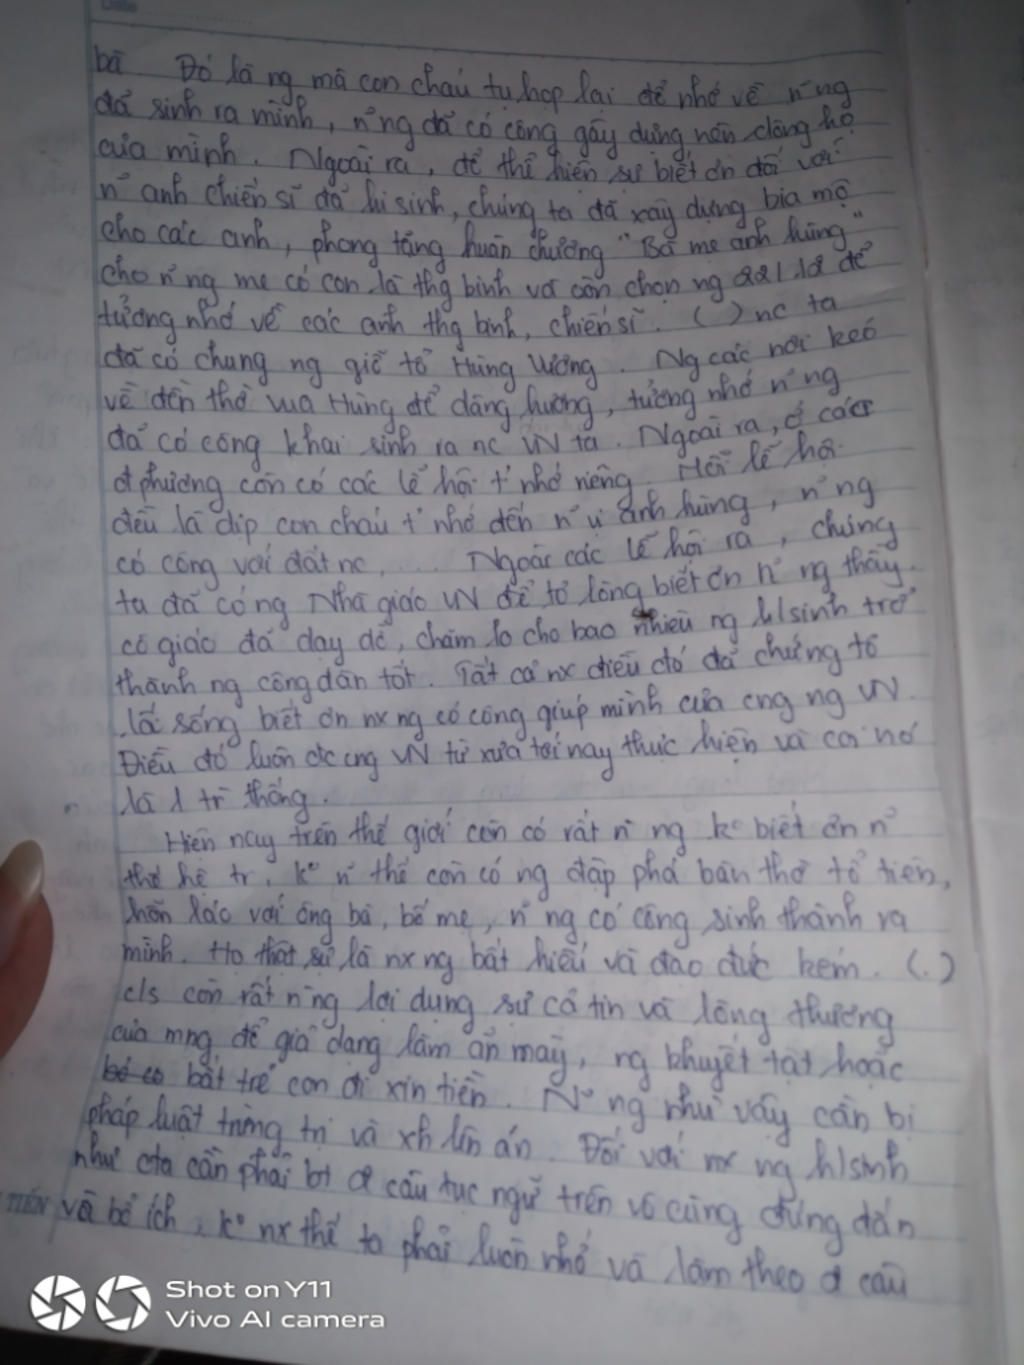 Date
bà Đó là ng mà con cháu tụ họp lại để nhớ về n~ng
đã sinh ra mình, n~ng đã có công gây dựng nên dòng họ
của mình. Ngoài ra, để thể hiện sự biết ơn đối với
n~ anh chiến sĩ đã hi sinh, chúng ta đã xây dựng bia mộ
cho các anh, phong tặng huân chương "Bà mẹ anh hùng"
cho n~ng mẹ có con là thg binh và còn chọn ng 22/12 để
tưởng nhớ về các anh thg binh, chiến sĩ. ( ) nc ta
đã có chung ng giỗ tổ Hùng Vương. Ng các nơi kéo
về đền thờ vua Hùng để dâng hương, tưởng nhớ n~ng
đã có công khai sinh ra nc VN ta. Ngoài ra, ở các
đ phương còn có các lễ hội t' nhớ riêng. Mỗi lễ hội
đều là dịp con cháu t' nhớ đến n~ vị anh hùng, n~ng
có công với đất nc, ... Ngoài các lễ hội ra, chúng
ta đã có ng Nhà giáo VN để tỏ lòng biết ơn n~ng thầy
cô giáo đã dạy dỗ, chăm lo cho bao nhiêu ng h/sinh trở
thành ng công dân tốt. Tất cả nx điều đó đã chứng tỏ
lẽ sống biết ơn nx ng có công giúp mình của cng ng VN.
Điều đó luôn đc cng VN từ xưa tới nay thực hiện và coi nó
là 1 tr thống.
Hiện nay trên thế giới còn có rất n~ ng ko biết ơn n~
thế hệ tr. ko n~ thế còn có ng đập phá bàn thờ tổ tiên,
hỗn láo với ông bà, bố mẹ, n~ng có công sinh thành ra
mình. Họ thật sự là nx ng bất hiếu và đạo đức kém. (.)
c/s còn rất n~ng lợi dụng sự cả tin và lòng thương
của mng để giả dạng làm ăn mày, ng khuyết tật hoặc
bắt trẻ con đi xin tiền. N~ ng như vậy cần bị
pháp luật trừng trị và xh lên án. Đối với nx ng h/sinh
như cta cần phải bt đ câu tục ngữ trên vô cùng đúng đắn
TIẾN và bổ ích, ko nx thế ta phải luôn nhớ và làm theo đ câu
Shot on Y11
Vivo AI camera